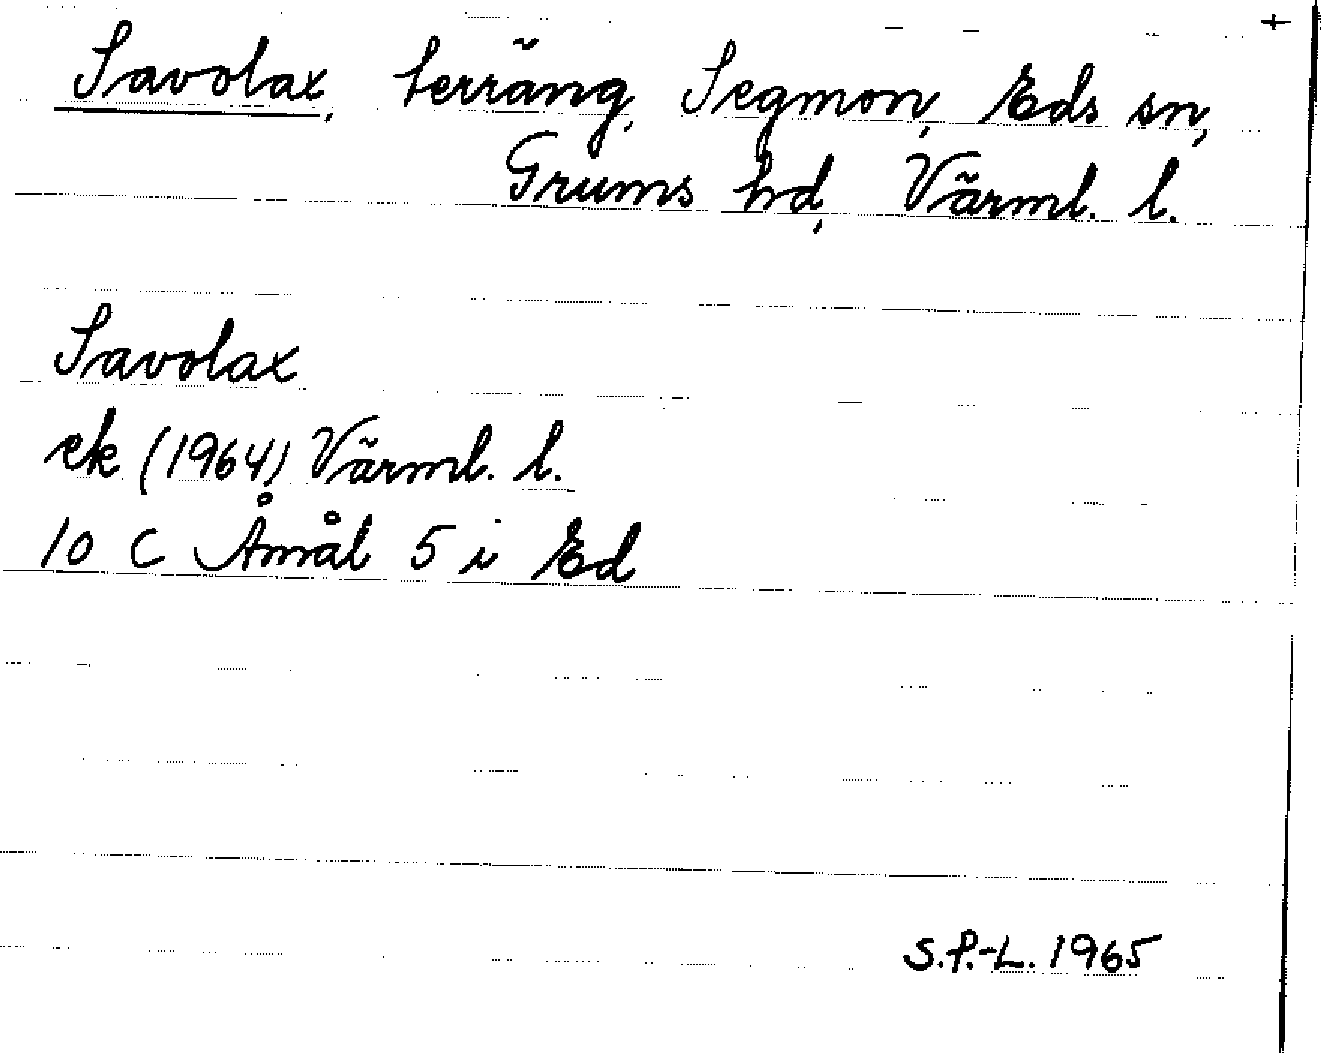 +
Savolax, terräng, Segmon, Eds sn,
Grums hd, Värml. l.
Savolax
ek (1964) Värml. l.
10 C Åmål 5 i Ed
S.P.-L. 1965